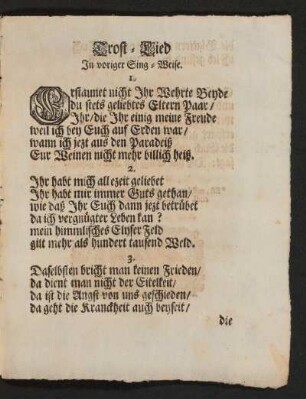 Trost-Lied
In voriger Sing-Weise.
1.
Erstaunet nicht Ihr Wehrte Beyde
du stets geliebtes Eltern Paar/
Ihr/die Ihr einig meine Freude
weil ich bey Euch auf Erden war/
wann ich jezt aus den Paradeiß
Eur Weinen nicht mehr billich heiß.
2.
Ihr habt mich allezeit geliebet
Ihr habt mir immer Guts gethan/
wie daß Ihr Euch dann jezt betrübet
da ich vergnügter Leben kan?
mein himmlisches Elyser Feld
gilt mehr als hundert tausend Weld.
3.
Daselbsten bricht man keinen Frieden/
da dient man nicht der Eitelkeit/
da ist die Angst von uns geschieden/
da geht die Kranckheit auch beyseit/
die